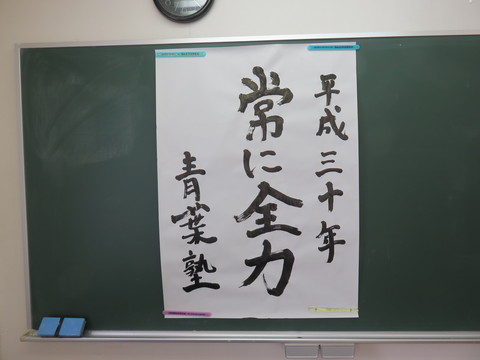 平成三十年
常に全力
青葉塾